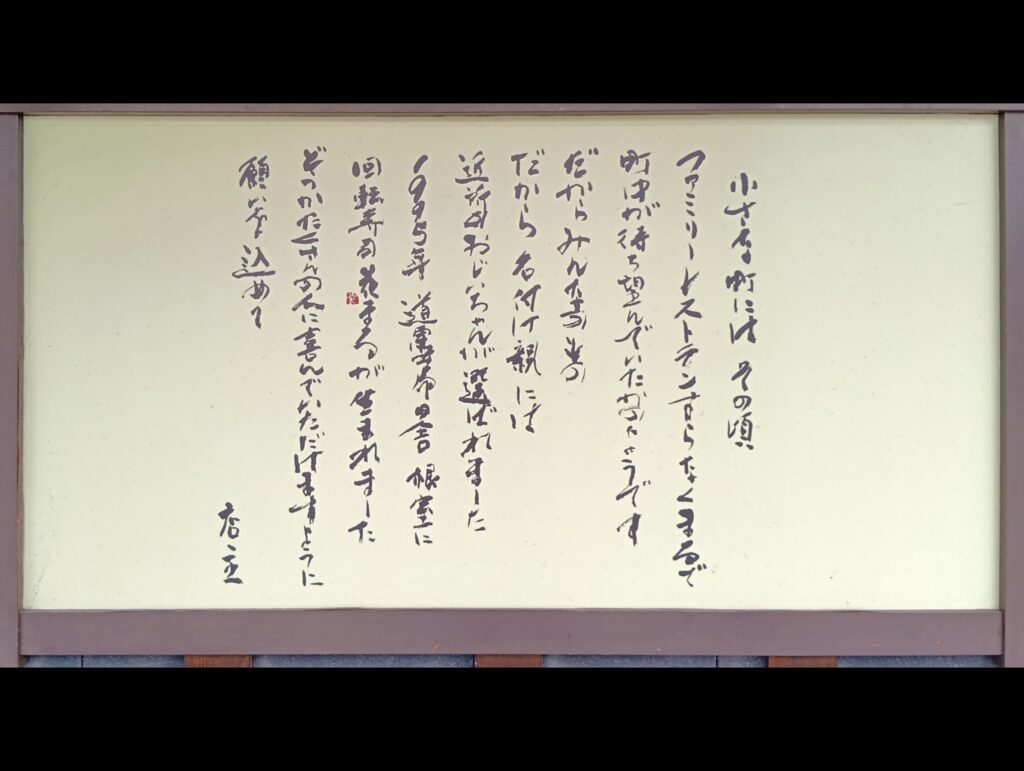 小さな町には その頃
ファミリーレストランすらなくまるで
町中が待ち望んでいたかのようです
だからみんな
だから 名付け親には
近所のおじいちゃんが選ばれました
1994年 道東の片田舎 根室に
回転寿司花まるが生まれました
どうかたくさんの人に喜んでいただけますように
願いを込めて
店主